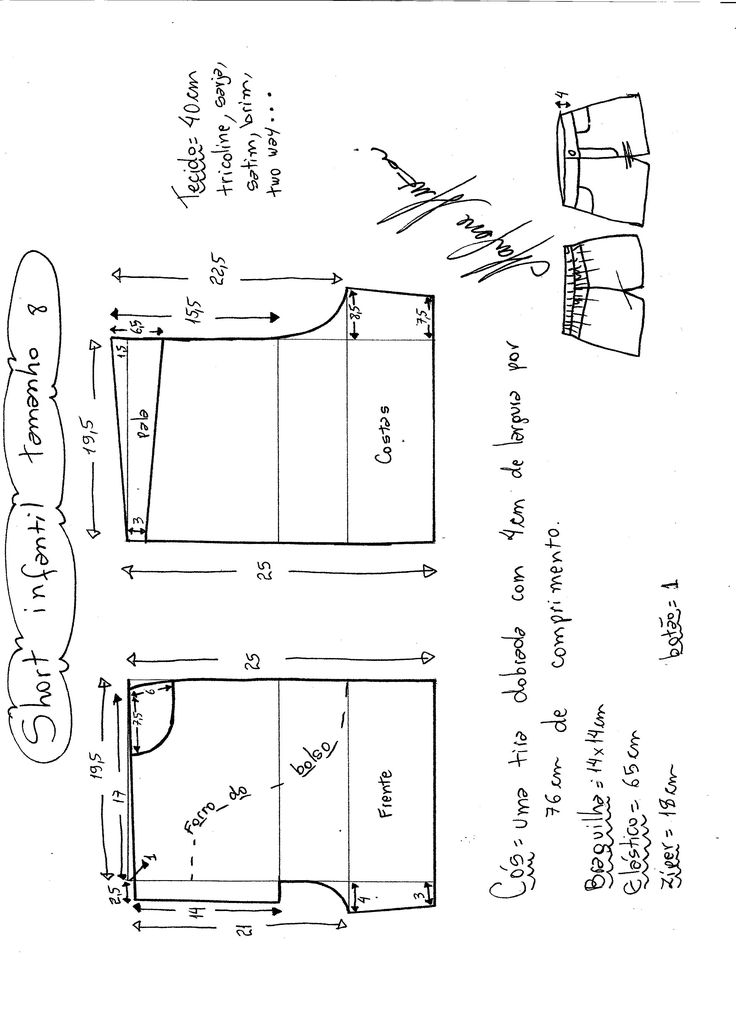 Short infantil tamanho 8
Tecido = 40 cm
tricoline, sarja,
satim, brim,
two way...
19,5
17
2,5
1
7,5
6
14
21
25
Forro do bolso
Frente
4
3
19,5
25
1,5
6,5
15,5
22,5
3
Pala
Costas
8,5
7,5
Marlene Mukai
4
Cós = uma tira dobrada com 4 cm de largura por
76 cm de comprimento.
Braguilha = 14x14 cm
Elástico = 65 cm
zíper = 18 cm
botão = 1